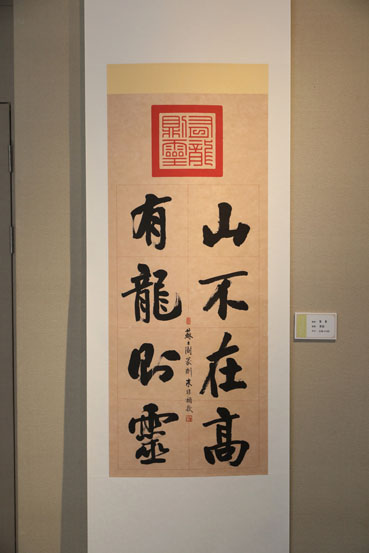 有龍則靈
山不在高
有龍則靈